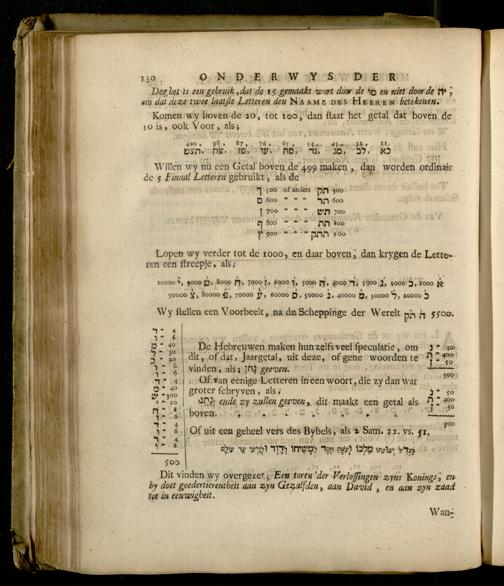 130 ONDERWYS DER
Dog het is een gebruik, dat de 15 gemaakt wort door de טו en niet door de יה,
om dat deze twee laatste Letteren den NAAME DES HEEREN betekenen.
Komen wy boven de 20, tot 100, dan staat het getal dat boven de
10 is, ook Voor, als;
Willen wy nu een Getal boven de 499 maken, dan worden ordinair
de 5 Finaal Letteren gebruikt, als de
ך 500 of anders תק 500
ם 600 - - - תר 600
ן 700 - - - תש 700
ף 800 - - - תת 800
ץ 900 - - - תתק 900
Lopen wy verder tot de 1000, en daar boven, dan krygen de Lette-
ren een streepje, als;
Wy stellen een Voorbeelt, na de Scheppinge der Werelt ה תק 5500.
De Hebreuwen maken hun zelfs veel speculatie, om
dit, of dat, Jaargetal, uit deze, of gene woorden te
vinden, als; נתן geeven.
Of van eenige Letteren in een woort, die zy dan wat
groter schryven, als;
ende zy zullen geeven, dit maakt een getal als
boven.
Of uit een geheel vers des Bybels, als 2 Sam. 22. vs. 51,
מגדל ישועות מלכו ועשה חסד למשיחו לדוד ולזרעו עד עולם
500
Dit vinden wy overgezet; Een toren der Verlossingen zyns Konings, en
hy doet goedertierentheit aan zyn Gezalfden, aan David, en aan zyn zaad
tot in eeuwigheit.
Wan-